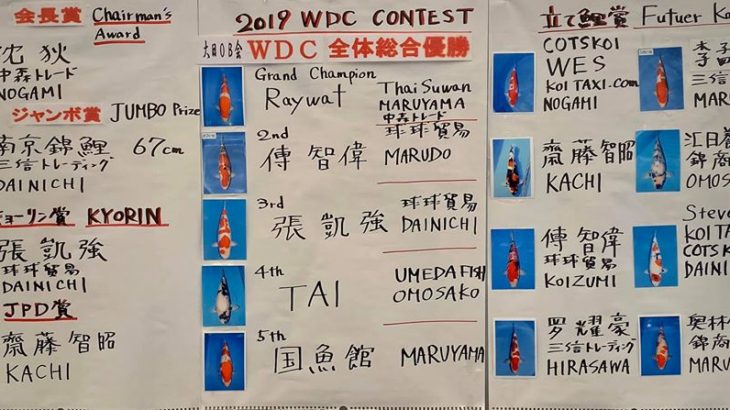 会長賞 Chairman's
Award
沈 狄
中森トレード
NOGAMI
ジャンボ賞 JUMBO Prize
南京錦鯉 67cm
三信トレーディング
DAINICHI
キョーリン賞 KYORIN
張凱強
球球貿易
DAINICHI
JPD賞
齋藤智昭
KACHI
2019 WDC CONTEST
大日OB会 WDC 全体総合優勝
Grand Champion
Raywat ThaiSuwan
MARUYAMA
中森トレード
2nd 球球貿易
傳智偉 MARUDO
3rd 球球貿易
張凱強 DAINICHI
4th UMEDA FISH
TAI OMOSAKO
5th
国魚館 MARUYAMA
立て鯉賞 Futuer
COTSKOI
WES
KOI TAXI.com
NOGAMI
三信
齋藤智昭
KACHI
錦商
OMOS
傳智偉
球球貿易
KOIZUMI
Steve
KOI TA
COTSK
DAINI
罗耀豪
三信トレーディング
HIRASAWA
奥林
錦商
MARU